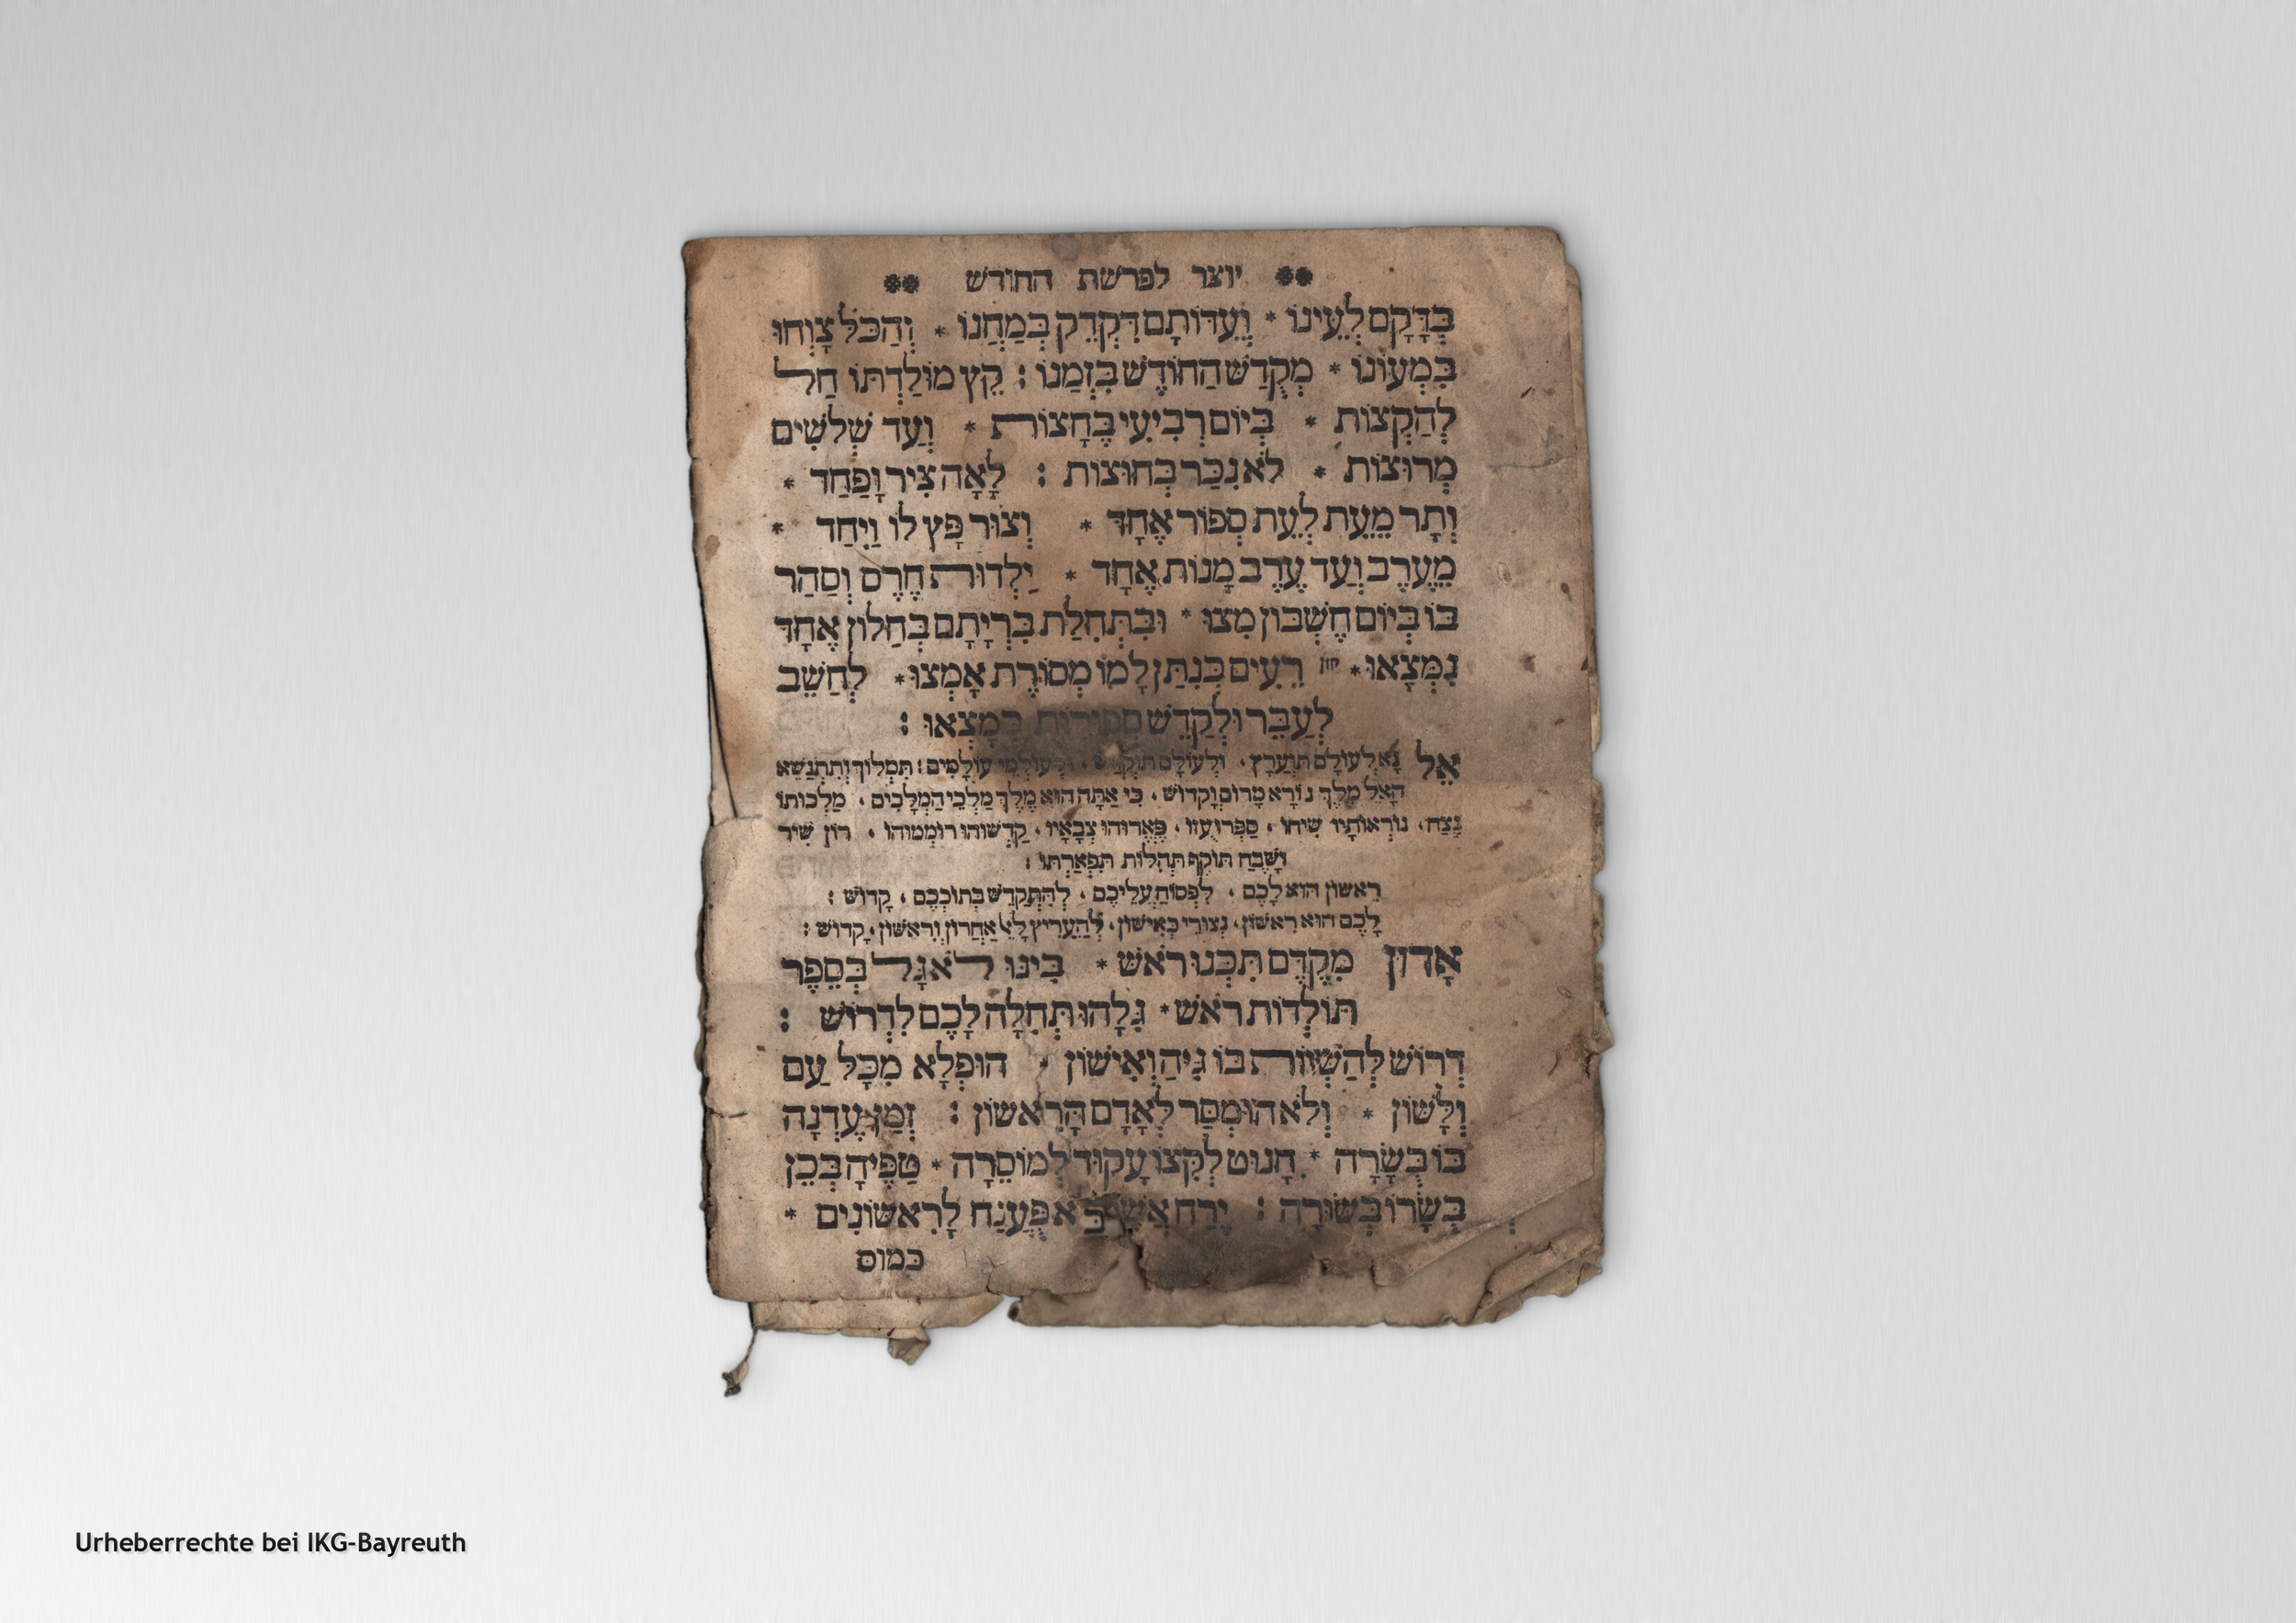 ** יוצר לפרשת החודש **
בְּדָקָם לְעֵינוֹ * וְעֵדוֹתָם דִּקְדֵק בְּמַחֲנוֹ * וְהַכֹּל צָוְחוּ
בִּמְעוֹנוֹ * מְקֻדָּשׁ הַחוֹדֶשׁ בִּזְמַנוֹ : קֵץ מוֹלַדְתּוֹ חַל
לְהַקְצוֹת * בְּיוֹם רְבִיעִי בֶּחָצוֹת * וְעַד שְׁלֹשִׁים
מְרוּצוֹת * לֹא נִכַּר בְּחוּצוֹת : לָאָה צִיר וָפַחַד *
וְתָר מֵעֵת לְעֵת סְפוֹר אֶחָד * וְצוּר פָּץ לוֹ וַיִּחַד *
מֵעֶרֶב וְעַד עֶרֶב מָנוֹת אֶחָד * יַלְדוּת חֶרֶס וְסַהַר
בּוֹ בְּיוֹם חֶשְׁבּוֹן מִצּוּ * וּבִתְחִלַּת בְּרִיָתָם בְּחַלּוֹן אֶחָד
נִמְצָאוּ * חזן רֵעִים כְּנִתַּן לָמוֹ מְסוֹרֶת אָמְצוּ * לְחַשֵּׁב
לְעַבֵּר וּלְקַדֵּשׁ סְפוּרוֹת כְּמָצְאוּ :
אֵל נָא לְעוֹלָם תּוּעֲרָץ . וּלְעוֹלָם תּוּקְדָּשׁ . וּלְעוֹלְמֵי עוֹלָמִים : תִּמְלוֹךְ וְתִתְנַשֵּׂא
הָאֵל מֶלֶךְ נוֹרָא מָרוֹם וְקָדוֹשׁ . כִּי אַתָּה הוּא מֶלֶךְ מַלְכֵי הַמְּלָכִים . מַלְכוּתוֹ
נֶצַח . נוֹרְאוֹתָיו שִׂיחוּ . סַפְּרוּ עֻזּוֹ . פָּאֲרוּהוּ צְבָאָיו . קַדְּשׁוּהוּ רוֹמְמוּהוּ . רוֹן שִׁיר
וָשֶׁבַח תּוֹקֶף תְּהִלּוֹת תִּפְאַרְתּוֹ :
רִאשׁוֹן הוּא לָכֶם . לִפְסוֹחַ עֲלֵיכֶם . לְהִתְקַדֵּשׁ בְּתוֹכְכֶם . קָדוֹשׁ :
לָכֶם הוּא רִאשׁוֹן . נְצוּרֵי כְּאִישׁוֹן . לְהַעֲרִיץ לְאַחֲרוֹן וְרִאשׁוֹן . קָדוֹשׁ :
אָדוֹן מִקֶּדֶם תִּכְּנוֹ רֹאשׁ * בִּינוֹ לֹא גָל בְּסֵפֶר
תּוֹלְדוֹת רֹאשׁ * גִּלָּהוּ תְּחִלָּה לָכֶם לִדְרוֹשׁ :
דְּרוֹשׁ לְהַשְׁווֹת בּוֹ גִּיהַ וְאִישׁוֹן * הוּפְלָא מִכָּל עַם
וְלָשׁוֹן * וְלֹא הוּמְסַר לְאָדָם הָרִאשׁוֹן : זְמַן עֶדְנָה
בּוֹ בְּשָׂרָה * חָנוּט לְקִצּוֹ עָקוּד לְמוֹסֵרָה * טַפֶּיהָ בְּכֵן
בְּשָׂרוֹ בְּשׂוּרָה : יֶרַח אֲשֶׁר בָּא פְּעֲנַח לָרִאשׁוֹנִים *
כמוס
Urheberrechte bei IKG-Bayreuth